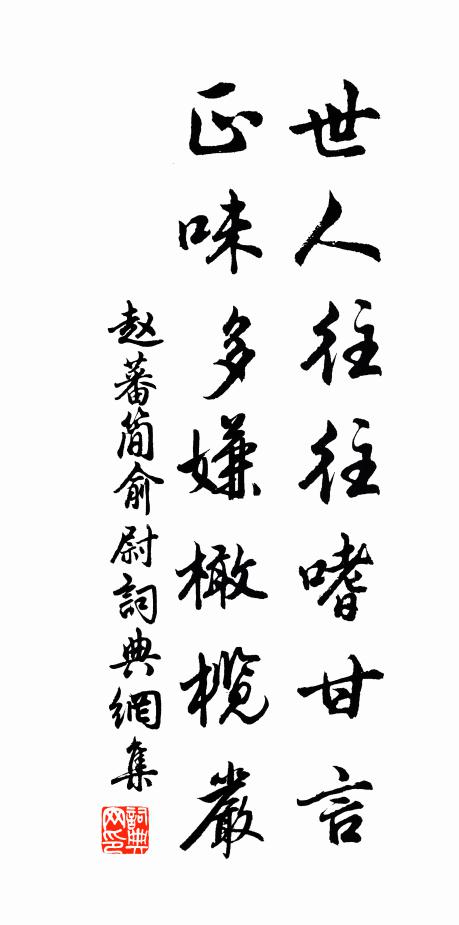 世人往往嗜甘言
正味多嫌橄榄嚴
赵蕃简俞尉詞典網集
詞典网印